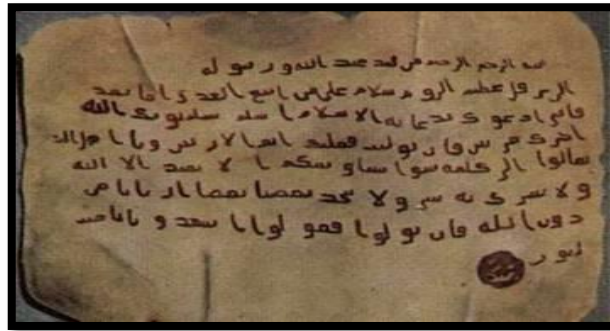 بسم الله الرحمن الرحيم من محمد عبد الله ورسوله
الى هرقل عظيم الروم سلام على من اتبع الهدى اما بعد
فاني ادعوك بدعاية الاسلام اسلم تسلم يوتك الله
اجرك مرتين فان توليت فعليك اثم الاريسين ويا اهل الكتاب
تعالوا الى كلمة سوا بيننا وبينكم ا لا نعبد الا الله
ولا نشرك به شيا ولا يتخذ بعضنا بعضا اربابا من
دون الله فان تولوا فقولوا اشهدوا بانا